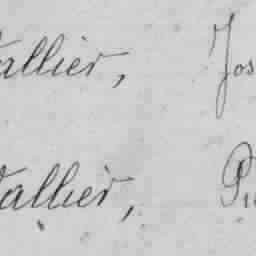 allier, Jos
allier, Pi